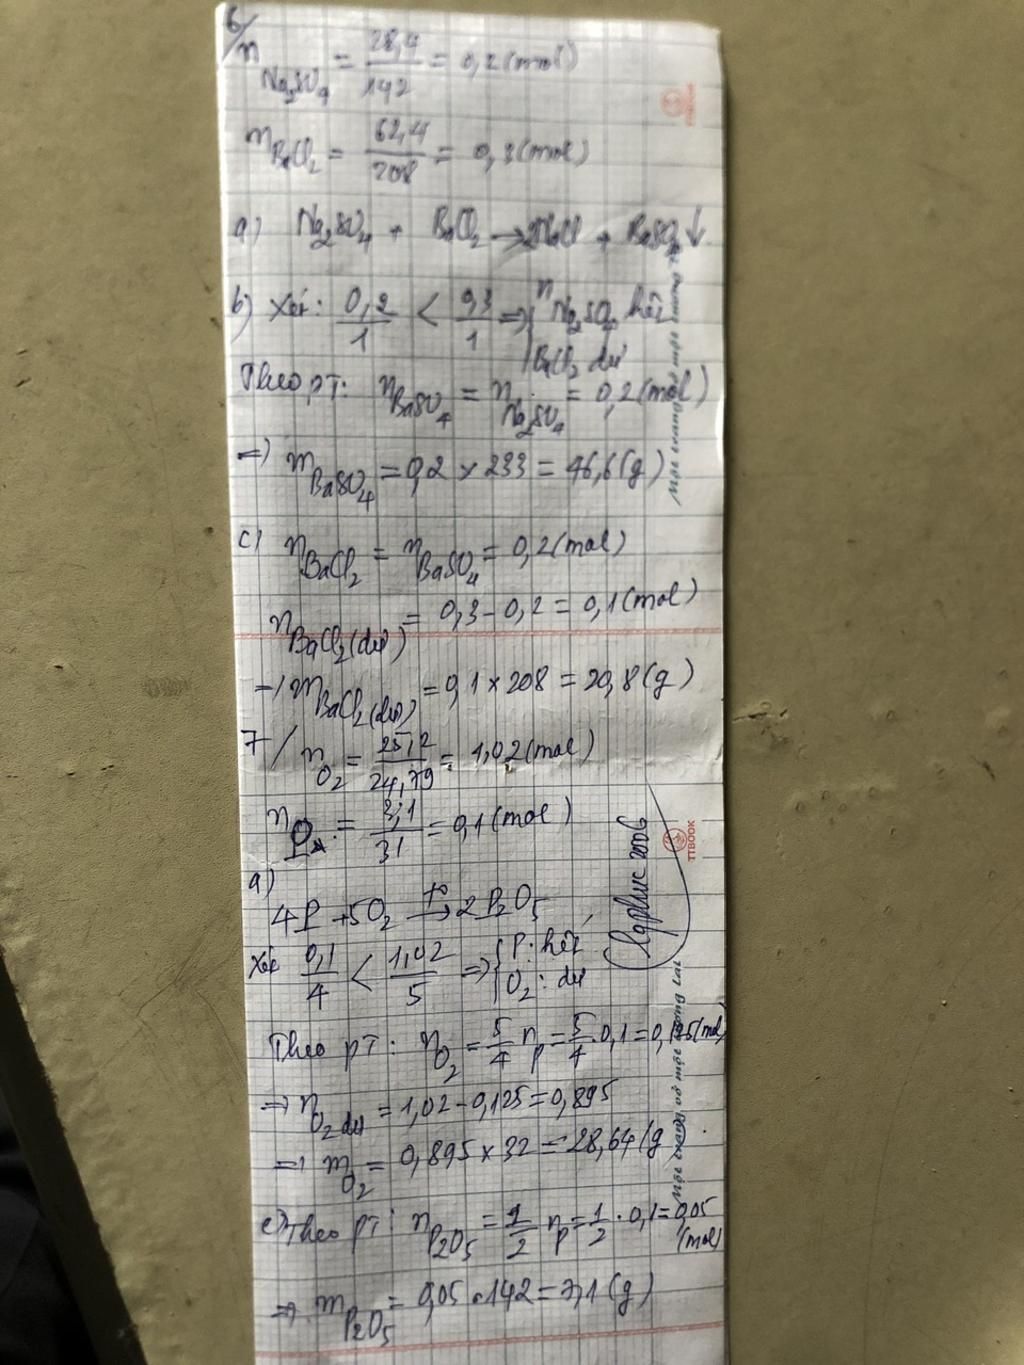 6/
n Na₂SO₄ = 28,4/142 = 0,2 (mol)
n BaCl₂ = 62,4/208 = 0,3 (mol)
a) Na₂SO₄ + BaCl₂ → 2NaCl + BaSO₄↓
b) Xét: 0,2/1 < 0,3/1 ⇒ { n Na₂SO₄ hết
BaCl₂ dư
Theo pT: n BaSO₄ = n Na₂SO₄ = 0,2 (mol)
⇒ m BaSO₄ = 0,2 × 233 = 46,6 (g)
c) n BaCl₂ = n BaSO₄ = 0,2 (mol)
n BaCl₂ (dư) = 0,3 - 0,2 = 0,1 (mol)
⇒ m BaCl₂ (dư) = 0,1 × 208 = 20,8 (g)
7/ n O₂ = 25,2/24,79 = 1,02 (mol)
n P = 3,1/31 = 0,1 (mol)
a)
4P + 5O₂ t°→ 2P₂O₅
Xét 0,1/4 < 1,02/5 ⇒ { P: hết
O₂: dư
Theo pT: n O₂ = 5/4 n P = 5/4 . 0,1 = 0,125 (mol)
⇒ n O₂ dư = 1,02 - 0,125 = 0,895
⇒ m O₂ = 0,895 × 32 = 28,64 (g)
c) Theo pT: n P₂O₅ = 1/2 n P = 1/2 . 0,1 = 0,05
(mol)
⇒ m P₂O₅ = 0,05 . 142 = 7,1 (g)
TTBOOK
TTBOOK